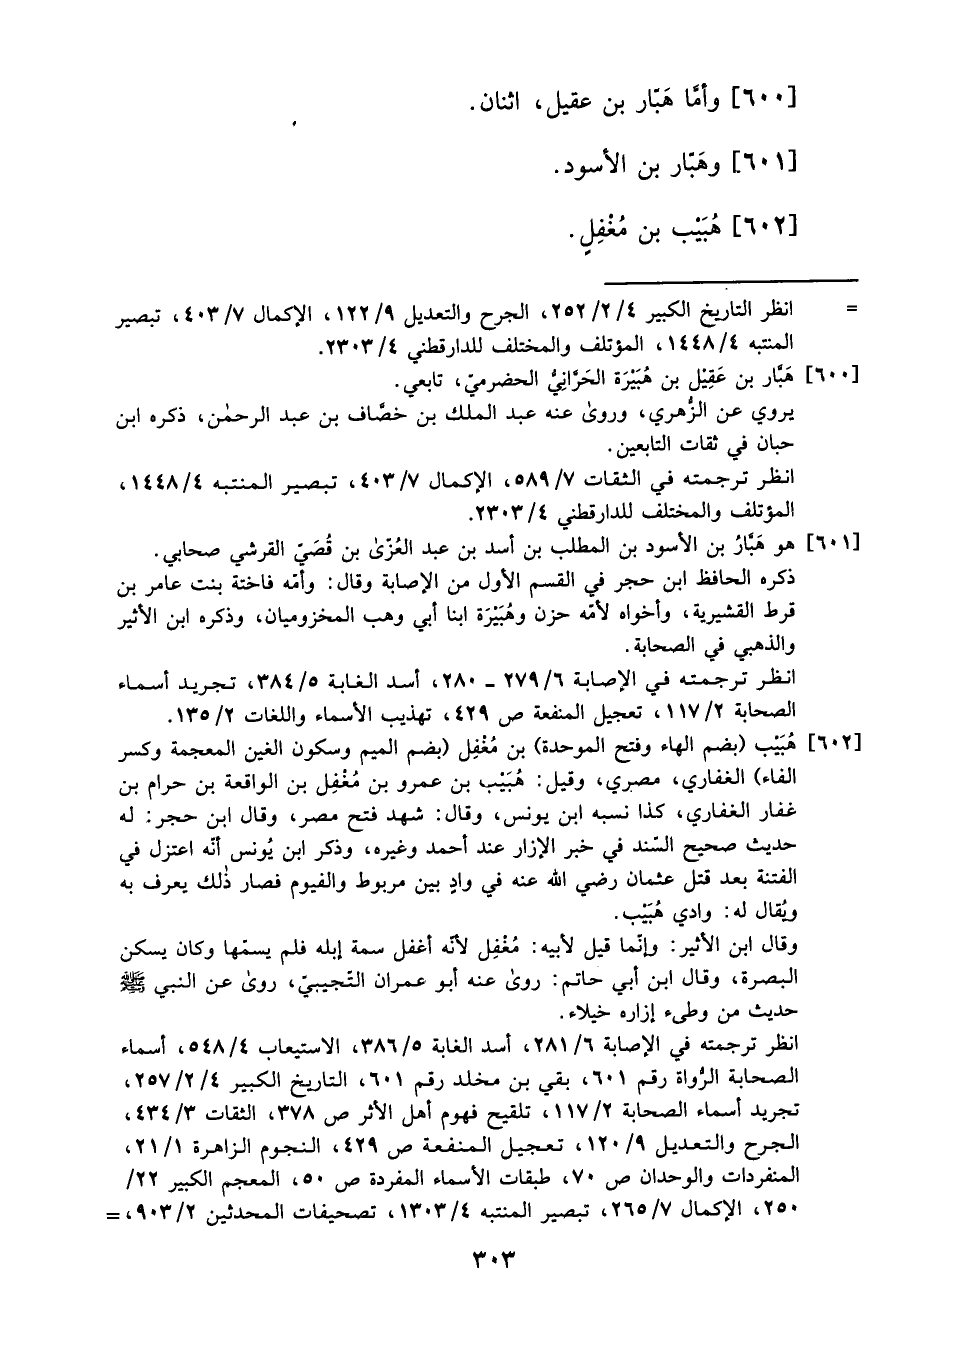 [٦٠٠] وأمَّا هَبّار بن عقيل، اثنان.
[٦٠١] وهَبّار بن الأسود.
[٦٠٢] هُبَيْب بن مُغْفِلٍ.
= انظر التاريخ الكبير ٢٥٢/٢/٤، الجرح والتعديل ١٢٢/٩، الإكمال ٤٠٣/٧، تبصير
المنتبه ١٤٤٨/٤، المؤتلف والمختلف للدارقطني ٢٣٠٣/٤.
[٦٠٠] هَبَّار بن عَقِيْل بن هُبَيْرَة الحَرَّانِيُّ الحضرميّ، تابعي.
يروي عن الزُّهري، وروىٰ عنه عبد الملك بن خصَّاف بن عبد الرحمٰن، ذكره ابن
حبان في ثقات التابعين.
انظر ترجمته في الثقات ٥٨٩/٧، الإكمال ٤٠٣/٧، تبصير المنتبه ١٤٤٨/٤،
المؤتلف والمختلف للدارقطني ٢٣٠٣/٤.
[٦٠١] هو هَبَّارُ بن الأسود بن المطلب بن أسد بن عبد العُزّىٰ بن قُصَيّ القرشي صحابي.
ذكره الحافظ ابن حجر في القسم الأول من الإصابة وقال: وأمّه فاختة بنت عامر بن
قرط القشيرية، وأخواه لأمّه حزن وهُبَيْرَة ابنا أبي وهب المخزوميان، وذكره ابن الأثير
والذهبي في الصحابة.
انظر ترجمته في الإصابة ٢٧٩/٦ ـ ٢٨٠، أسد الغابة ٣٨٤/٥، تجريد أسماء
الصحابة ١١٧/٢، تعجيل المنفعة ص ٤٢٩، تهذيب الأسماء واللغات ١٣٥/٢.
[٦٠٢] هُبَيْب (بضم الهاء وفتح الموحدة) بن مُغْفِل (بضم الميم وسكون الغين المعجمة وكسر
الفاء) الغفاري، مصري، وقيل: هُبَيْب بن عمرو بن مُغْفِل بن الواقعة بن حرام بن
غفار الغفاري، كذا نسبه ابن يونس، وقال: شهد فتح مصر، وقال ابن حجر: له
حديث صحيح السّند في خبر الإزار عند أحمد وغيره، وذكر ابن يُونس أنّه اعتزل في
الفتنة بعد قتل عثمان رضي الله عنه في وادٍ بين مربوط والفيوم فصار ذٰلك يعرف به
ويُقال له: وادي هُبَيْب.
وقال ابن الأثير: وإنّما قيل لأبيه: مُغْفِل لأنّه أغفل سمة إبله فلم يسمّها وكان يسكن
البصرة، وقال ابن أبي حاتم: روىٰ عنه أبو عمران التّجيبيّ، روىٰ عن النبي ﷺ
حديث من وطىء إزاره خيلاء.
انظر ترجمته في الإصابة ٢٨١/٦، أسد الغابة ٣٨٦/٥، الاستيعاب ٥٤٨/٤، أسماء
الصحابة الرُّواة رقم ٦٠١، بقي بن مخلد رقم ٦٠١، التاريخ الكبير ٢٥٧/٢/٤،
تجريد أسماء الصحابة ١١٧/٢، تلقيح فهوم أهل الأثر ص ٣٧٨، الثقات ٤٣٤/٣،
الجرح والتعديل ١٢٠/٩، تعجيل المنفعة ص ٤٢٩، النجوم الزاهرة ٢١/١،
المنفردات والوحدان ص ٧٠، طبقات الأسماء المفردة ص ٥٠، المعجم الكبير ٢٢/
٢٥٠، الإكمال ٢٦٥/٧، تبصير المنتبه ١٣٠٣/٤، تصحيفات المحدثين ٩٠٣/٢، =
٣٠٣